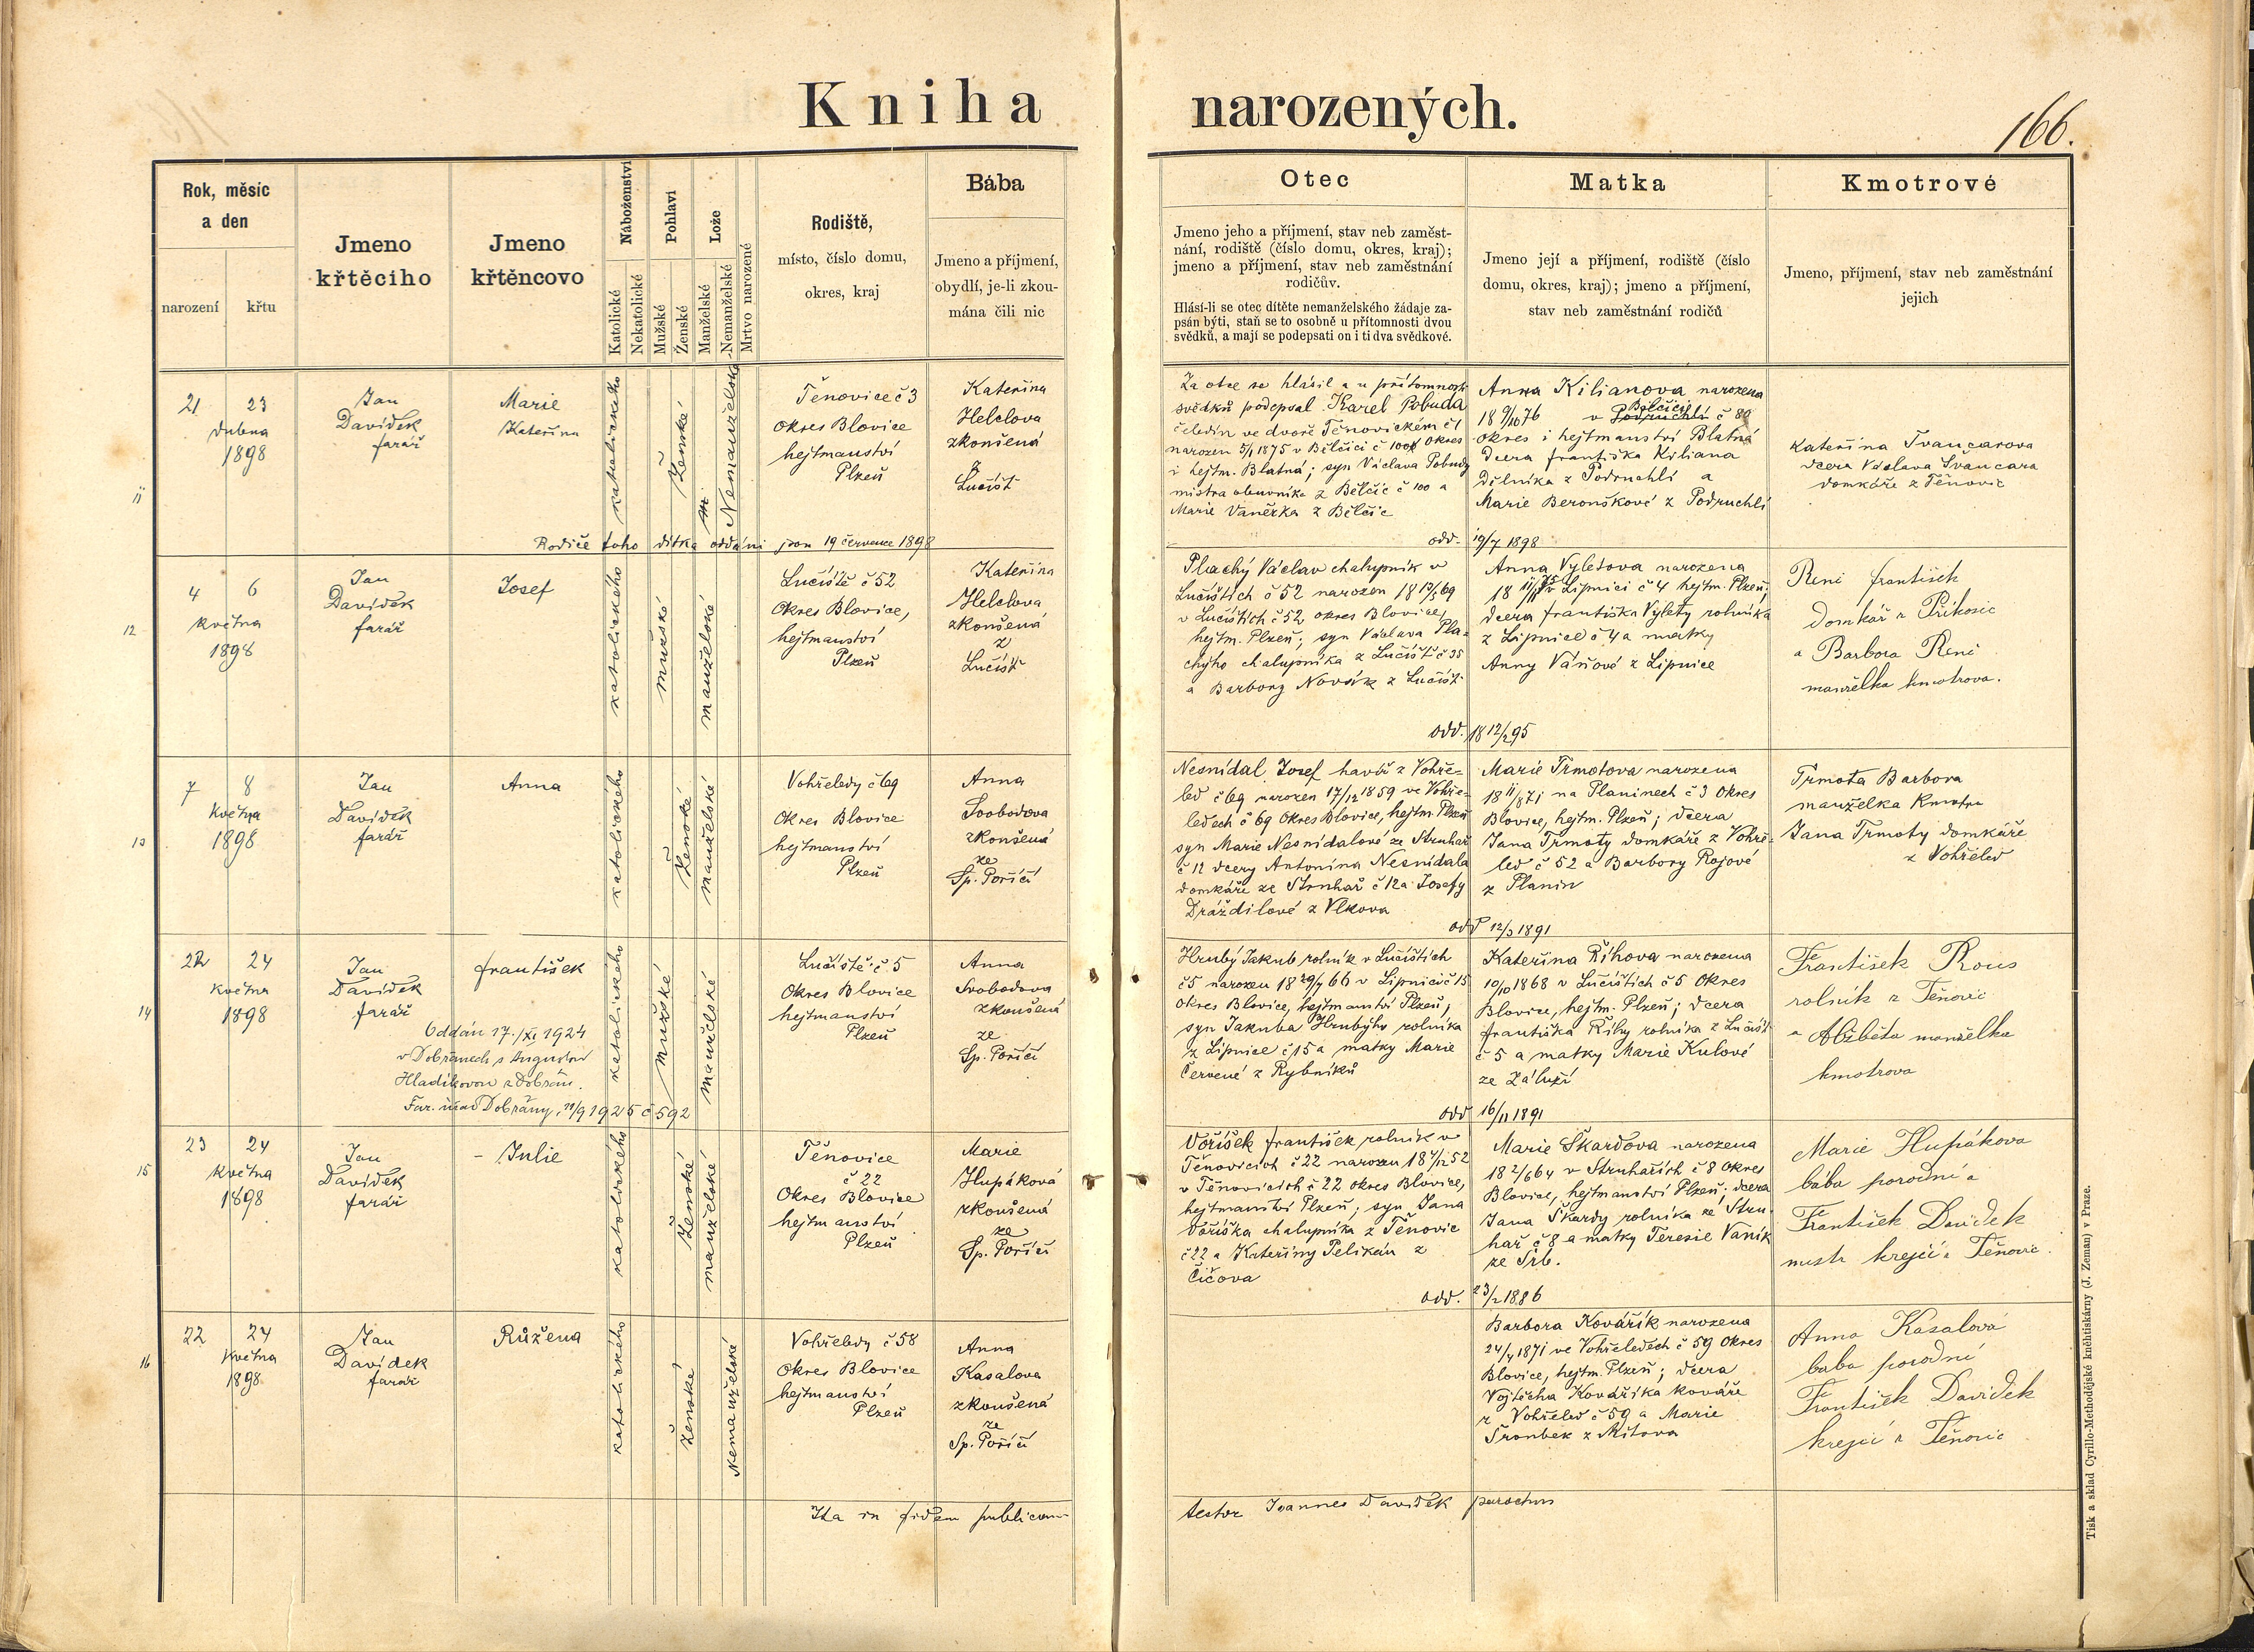 Kniha narozených.
166.
Rok, měsíc a den
narození
křtu
Jmeno křtěcího
Jmeno křtěncovo
Náboženství
Katolické
Nekatolické
Pohlaví
Mužské
Ženské
Lože
Manželské
Nemanželské
Mrtvo narozené
Rodiště,
místo, číslo domu,
okres, kraj
Bába
Jmeno a příjmení,
obydlí, je-li zkou-
mána čili nic
Otec
Jmeno jeho a příjmení, stav neb zaměst-
nání, rodiště (číslo domu, okres, kraj);
jmeno a příjmení, stav neb zaměstnání
rodičův.
Hlásí-li se otec dítěte nemanželského žádaje za-
psán býti, staň se to osobně u přítomnosti dvou
svědků, a mají se podepsati on i ti dva svědkové.
Matka
Jmeno její a příjmení, rodiště (číslo
domu, okres, kraj); jmeno a příjmení,
stav neb zaměstnání rodičů
Kmotrové
Jmeno, příjmení, stav neb zaměstnání
jejich
11
21 23
dubna
1898
Jan
Davídek
farář
Marie
Kateřina
katolického
Ženské
m
Nemanželské
Těnovice č 3
okres Blovice
hejtmanství
Plzeň
Kateřina
Helclova
zkoušená
z
Lučišť
Za otce se hlásil a u přítomnosti
svědků podepsal Karel Pobuda
čeledín ve dvoře Těnovickém č 1
narozen 5/1 1875 v Bělčici č 100 okres
i hejtm. Blatná; syn Václava Pobudy
mistra obuvníka z Bělčic č 100 a
Marie Vaněrka z Bělčic
Anna Kilianova narozena
Bělčicích
18 9/10 76 v Podruchlí č 80
okres i hejtmanství Blatná
dcera františka Kiliana
dělníka z Podruchlí a
Marie Beronškové z Podruchlí
Kateřina Švancarova
dcera Václava Švancara
domkáře z Těnovic
Rodiče toho dítka oddáni jsou 19 července 1898
odd. 19/7 1898
12
4 6
května
1898
Jan
Davídek
farář
Josef
katolického
mužské
manželské
Lučiště č 52
Okres Blovice,
hejtmanství
Plzeň
Kateřina
Helclova
zkoušená
z
Lučišť
Plachý Václav chalupník v
Lučištích č 52 narozen 18 17/3 69
v Lučištích č 52, okres Blovice,
hejtm. Plzeň; syn Václava Pla-
chýho chalupníka z Lučišť č 35
a Barbory Novák z Lučišť
Anna Vyletova narozena
v Lipnici č 4 hejtm. Plzeň;
dcera františka Vylety rolníka
z Lipnice č 4 a matky
Anny Váňové z Lipnice
Reni František
domkář z Příkosic
a Barbora Reni
manželka kmotrova.
odd. 18 12/2 95
13
7 8
května
1898
Jan
Davídek
farář
Anna
katolického
Ženské
manželské
Vohřeledy č 69
Okres Blovice
hejtmanství
Plzeň
Anna
Svobodova
zkoušená
ze
Sp. Poříčí
Nesnídal Josef havíř z Vohře-
led č 69 narozen 17/12 1859 ve Vohře-
ledech č 69 okres Blovice, hejtm. Plzeň
syn Marie Nesnídalové ze Struhař
č 12 dcery Antonína Nesnídala
domkáře ze Struhař č 12 a Josefy
Dráždilové z Vlkova
Marie Trmotova narozena
18 11/8 71 na Planinech č 3 okres
Blovice, hejtm. Plzeň; dcera
Jana Trmoty domkáře z Vohře-
led č 52 a Barbory Rojové
z Planin
Trmota Barbora
manželka kmotra
Jana Trmoty domkáře
z Vohřeled
odd 12/3 1891
14
22 24
května
1898
Jan
Davídek
farář
František
Oddán 17./XI 1924
v Dobřanech s Augustou
Hladíkovou z Dobřan.
Far. úřad Dobřany, 11/9 1925 č 592
katolického
mužské
manželské
Lučiště č. 5
Okres Blovice
hejtmanství
Plzeň
Anna
Svobodova
zkoušená
ze
Sp. Poříčí
Hrubý Jakub rolník v Lučištích
č 5 narozen 18 29/7 66 v Lipnici č 15
okres Blovice, hejtmanství Plzeň;
syn Jakuba Hrubýho rolníka
z Lipnice č 15 a matky Marie
Červené z Rybníků
Kateřina Říhova narozena
10/10 1868 v Lučištích č 5 okres
Blovice, hejtm. Plzeň; dcera
františka Říhy rolníka z Lučišť
č 5 a matky Marie Kulové
ze Záluží
František Rous
rolník z Těnovic
a Alžběta manželka
kmotrova
odd 16/11 1891
15
23 24
května
1898
Jan
Davídek
farář
- Julie
katolického
Ženské
manželské
Těnovice
č 22
Okres Blovice
hejtmanství
Plzeň
Marie
Hupáková
zkoušená
ze
Sp. Poříčí
Voříšek František rolník v
Těnovicích č 22 narozen 18 4/12 52
v Těnovicích č 22 okres Blovice,
hejtmanství Plzeň; syn Jana
Voříška chalupníka z Těnovic
č 22 a Kateřiny Pelikán z
Čičova
Marie Škardova narozena
18 2/6 64 v Struhařích č 8 okres
Blovice, hejtmanství Plzeň; dcera
Jana Škardy rolníka ze Stru-
hař č 8 a matky Teresie Vaník
ze Srb.
Marie Hupákova
bába porodní a
František Davídek
mistr krejčí z Těnovic.
odd. 23/2 1886
16
22 24
května
1898
Jan
Davídek
farář
Růžena
katolického
ženské
Nemanželské
Vohřeledy č 58
okres Blovice
hejtmanství
Plzeň
Anna
Kasalova
zkoušená
ze
Sp. Poříčí
Barbora Kovářík narozena
24/4 1871 ve Vohřeledech č 59 okres
Blovice, hejtm. Plzeň; dcera
Vojtěcha Kovaříka kováře
z Vohřeled č 59 a Marie
Šronbek z Mítova
Anna Kasalová
bába porodní
František Davídek
krejčí z Těnovic
Ita in fidem publicam testor Joannes Davídek parochus
Tisk a sklad Cyrillo-Methodějské knihtiskárny (J. Zeman) v Praze.